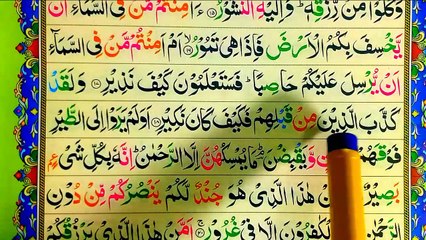 وَكُلُوْا مِنْ رِّزْقِهٖؕ وَاِلَيْهِ النُّشُوْرُ ۝۱۵ ءَاَمِنْتُمْ مَّنْ فِى السَّمَآءِ اَنْ
يَّخْسِفَ بِكُمُ الْاَرْضَ فَاِذَا هِىَ تَمُوْرُ ۝۱۶ اَمْ اَمِنْتُمْ مَّنْ فِى السَّمَآءِ
اَنْ يُّرْسِلَ عَلَيْكُمْ حَاصِبًاؕ فَسَتَعْلَمُوْنَ كَيْفَ نَذِيْرِ ۝۱۷ وَلَقَدْ
كَذَّبَ الَّذِيْنَ مِنْ قَبْلِهِمْ فَكَيْفَ كَانَ نَكِيْرِ ۝۱۸ اَوَلَمْ يَرَوْا اِلَى الطَّيْرِ
فَوْقَهُمْ وَّيَقْبِضْنَ ؕ مَا يُمْسِكُهُنَّ اِلَّا الرَّحْمٰنُؕ اِنَّهٗ بِكُلِّ شَىْءٍۭ
بَصِيْرٌ هٰذَا الَّذِىْ هُوَ جُنْدٌ لَّكُمْ يَنْصُرُكُمْ مِّنْ دُوْنِ
الرَّحْمٰنِ الْكٰفِرُوْنَ اِلَّا فِىْ غُرُوْرٍ ۝۲۰ اَمَّنْ هٰذَا الَّذِىْ يَرْزُقُكُمْ